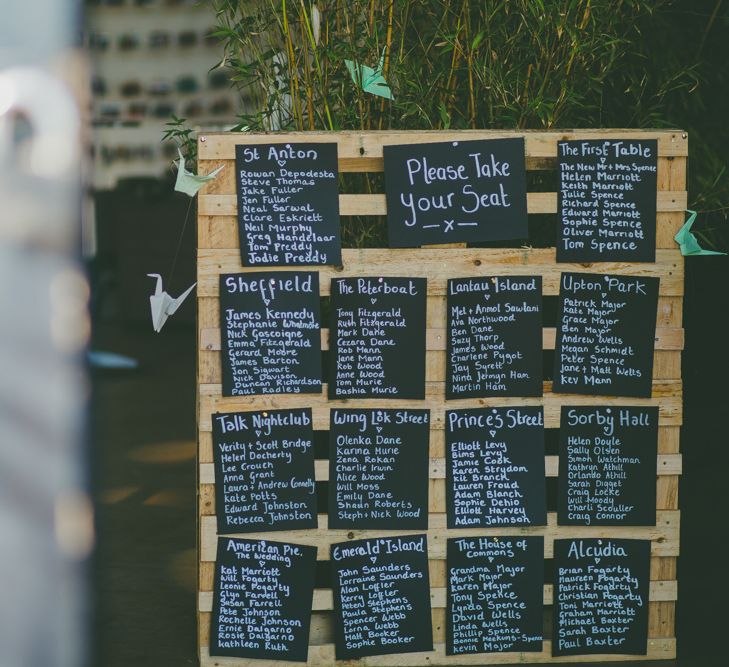 St Anton
Rowan Depodesta
Steve Thomas
Jake Fuller
Jen Fuller
Neal Sarwal
Clare Eskriett
Neil Murphy
Greg Handelaar
Tom Preddy
Jodie Preddy
Please Take
your Seat
— x —
The First Table
The New Mr + Mrs Spence
Helen Marriott
Keith Marriott
Julie Spence
Richard Spence
Edward Marriott
Sophie Spence
Oliver Marriott
Tom Spence
Sheffield
James Kennedy
Stephanie Whatmore
Nick Gascoigne
Emma Fitzgerald
Gerard Moore
James Barton
Jon Sigwart
Nick Davison
Duncan Richardson
Paul Radley
The Peterboat
Tony Fitzgerald
Ruth Fitzgerald
Mark Dane
Cezara Dane
Rob Mann
Jane Mann
Rob Wood
Anne Wood
Tom Murie
Bashia Murie
Lantau Island
Mel + Anmol Sawlani
Ava Northwood
Ben Dane
Suzy Thorp
James Wood
Charlene Pygot
Jay Syrett
Nina Jetmyn Ham
Martin Ham
Upton Park
Patrick Major
Kate Major
Grace Major
Ben Major
Andrew Wells
Megan Schmidt
Peter Spence
Jane + Matt Wells
Kev Mann
Talk Nightclub
Verity + Scott Bridge
Helen Docherty
Lee Crouch
Anna Grant
Laura + Andrew Connelly
Kate Potts
Edward Johnston
Rebecca Johnston
Wing Lok Street
Olenka Dane
Karina Murie
Zena Rokan
Charlie Irwin
Alice Wood
Will Moss
Emily Dane
Shaun Roberts
Steph + Nick Wood
Prince's Street
Elliott Levy
Bims Levy
Jamie Cook
Karen Strydom
Kit Branch
Lauren Froud
Adam Blanch
Sophie Dehio
Elliott Harvey
Adam Johnson
Sorby Hall
Helen Doyle
Sally Olsen
Simon Watchman
Kathryn Athill
Orlando Athill
Sarah Digget
Craig Locke
Will Moody
Charli Scouller
Craig Connor
American Pie.
The Wedding
Kat Marriott
Will Fogarty
Leonie Fogarty
Glyn Farrell
Susan Farrell
Pete Johnson
Rochelle Johnson
Ernie Dalgarno
Rosie Dalgarno
Kathleen Ruth
Emerald Island
John Saunders
Lorraine Saunders
Alan Loffler
Kerry Loffler
Peter Stephens
Paula Stephens
Spencer Webb
Lorna Webb
Matt Booker
Sophie Booker
The House of
Commons
Grandma Major
Mark Major
Karen Major
Tony Spence
Lynda Spence
David Wells
Linda Wells
Phillip Spence
Bonnie Meekings-Spence
Kevin Major
Alcudia
Brian Fogarty
Maureen Fogarty
Patrick Fogarty
Christian Fogarty
Toni Marriott
Graham Marriott
Michael Baxter
Sarah Baxter
Paul Baxter